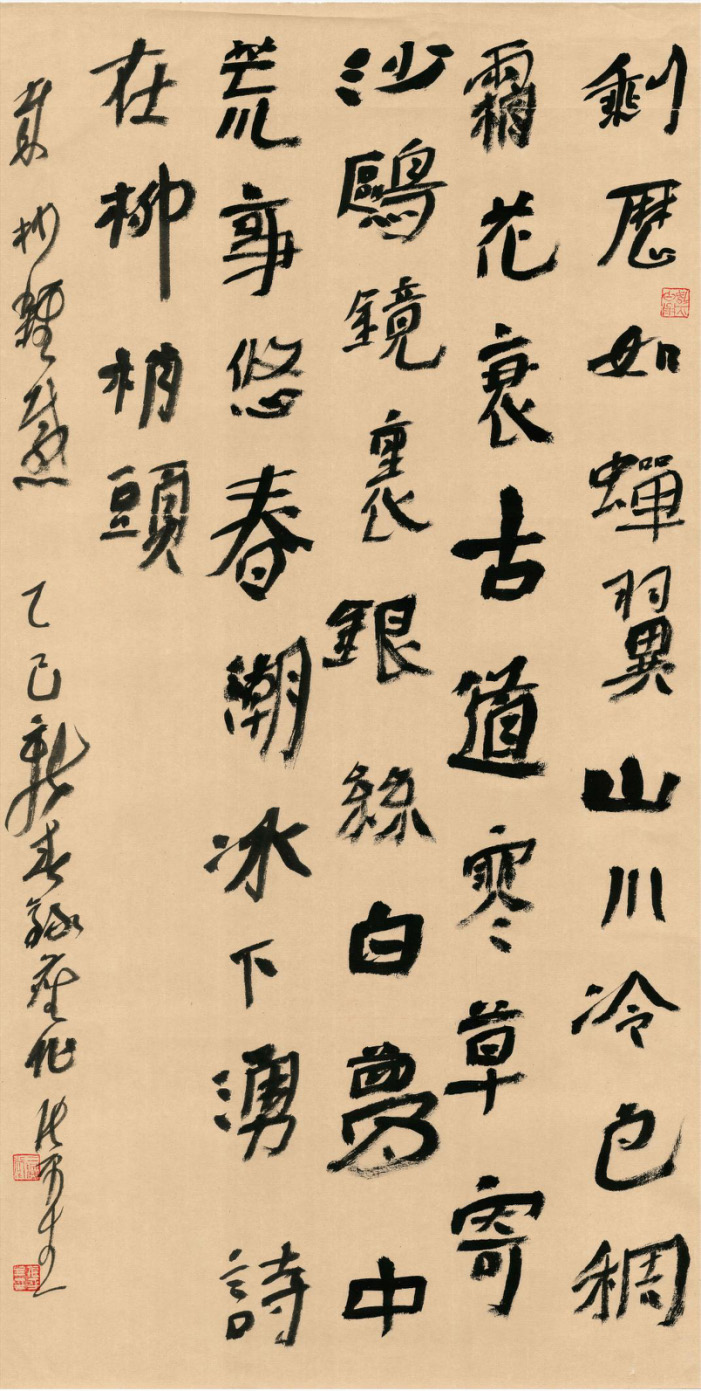 剩歷如蟬翼山川冷色稠
霜花衰古道寒草寄
沙鷗鏡裏銀絲白夢中
荒事悠春潮冰下湧詩
在柳梢頭
歲杪雜感 乙巳新春